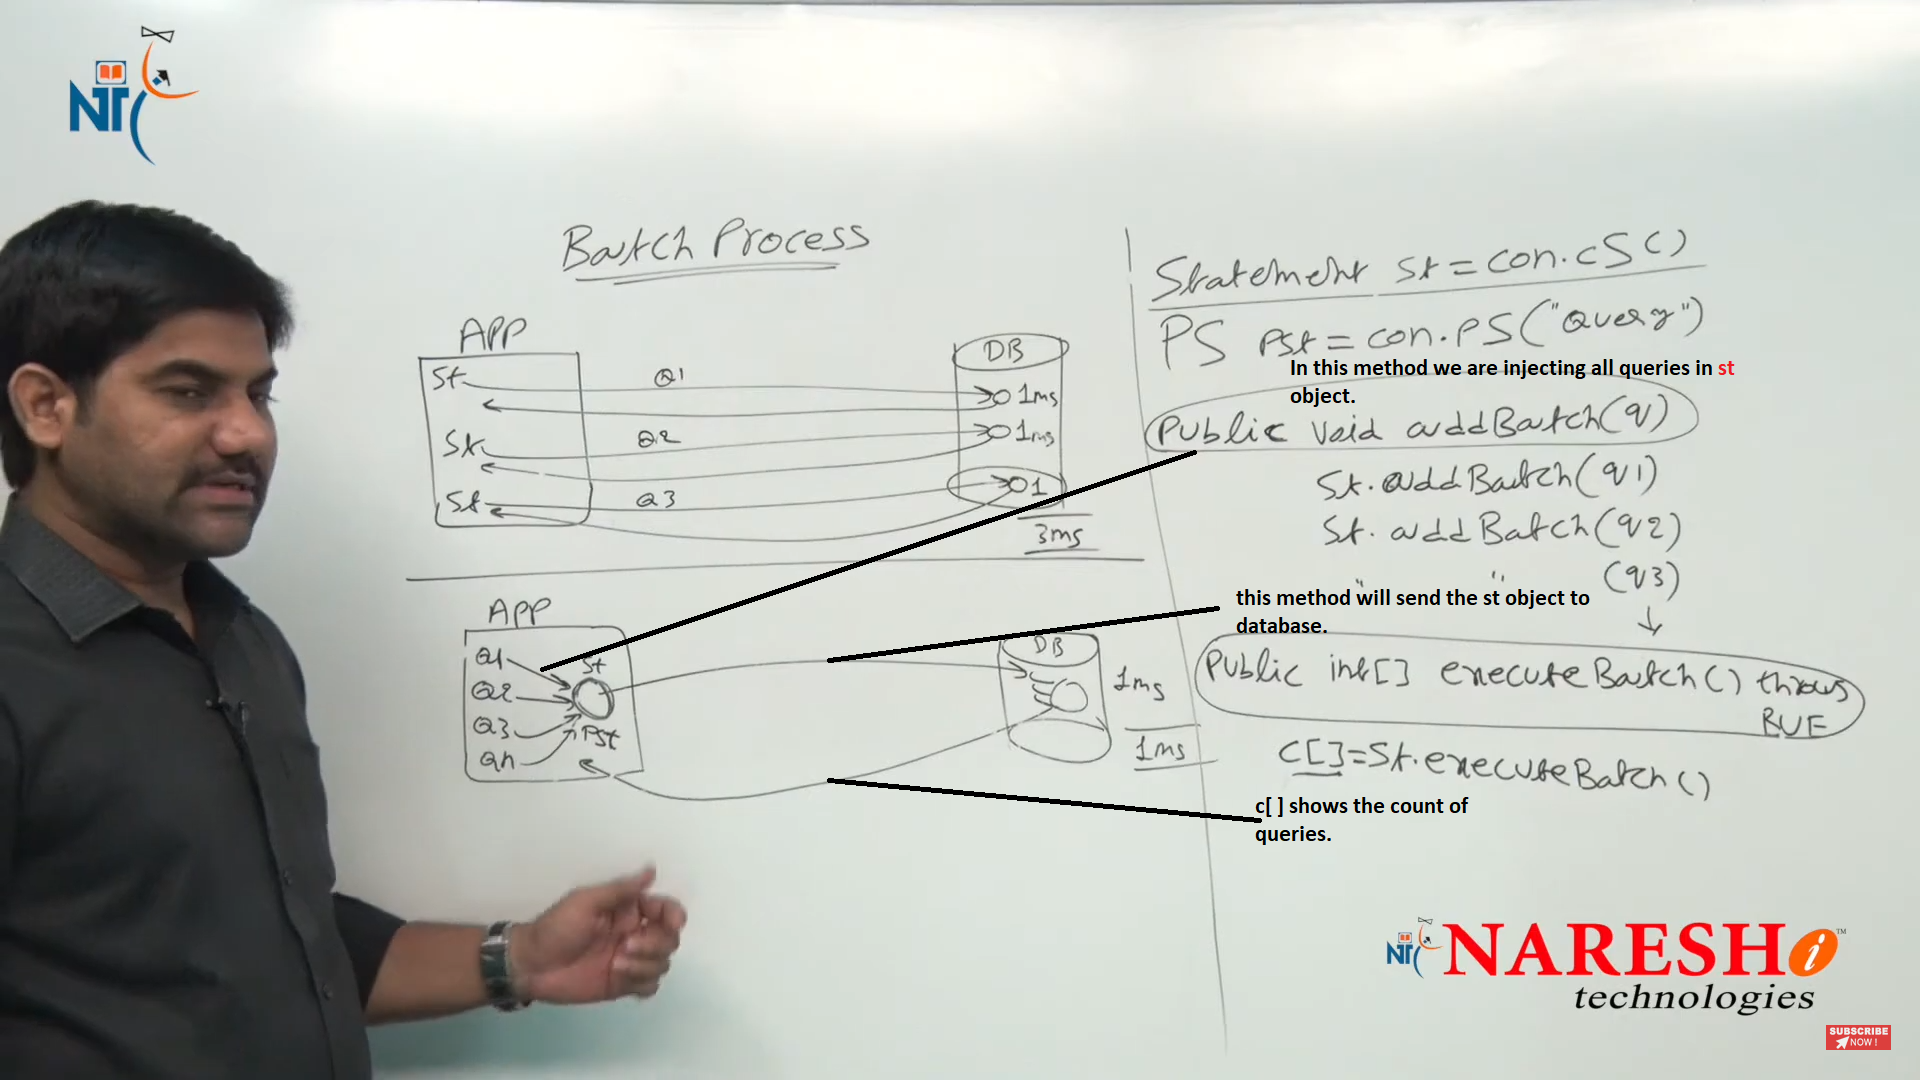 NT
Batch Process
APP
St
Q1
DB
1ms
St
Q2
1ms
St
Q3
1
3ms
APP
Q1
St
Q2
Q3
Pst
Qn
DB
1ms
1ms
Statement st = con.cS()
PS Pst = con.PS("Query")
In this method we are injecting all queries in st
object.
Public Void addBatch(q)
St.addBatch(q1)
St. addBatch(q2)
" " (q3)
this method will send the st object to
database.
Public int[] executeBatch() throws
BUE
c[]=St.executeBatch()
c[ ] shows the count of
queries.
NT NARESH i ™
technologies
SUBSCRIBE
NOW !